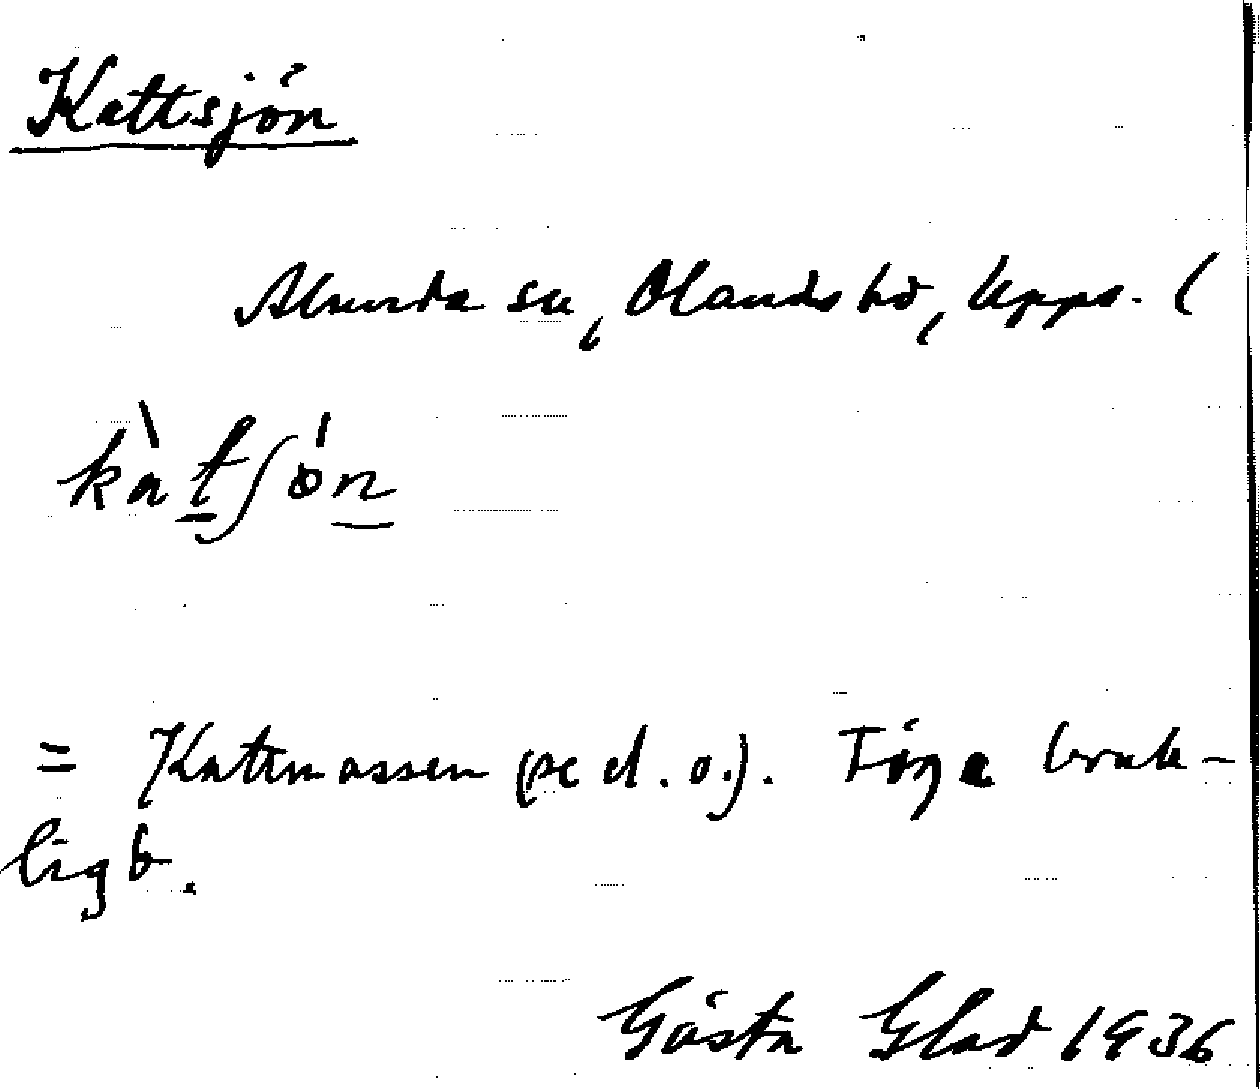 Kattsjön
Alunda sn, Olands hd, Upps. l
kàt∫ón
= Kattmossen (se d. o.). Föga bruk-
ligt.
Gösta Glad 1936